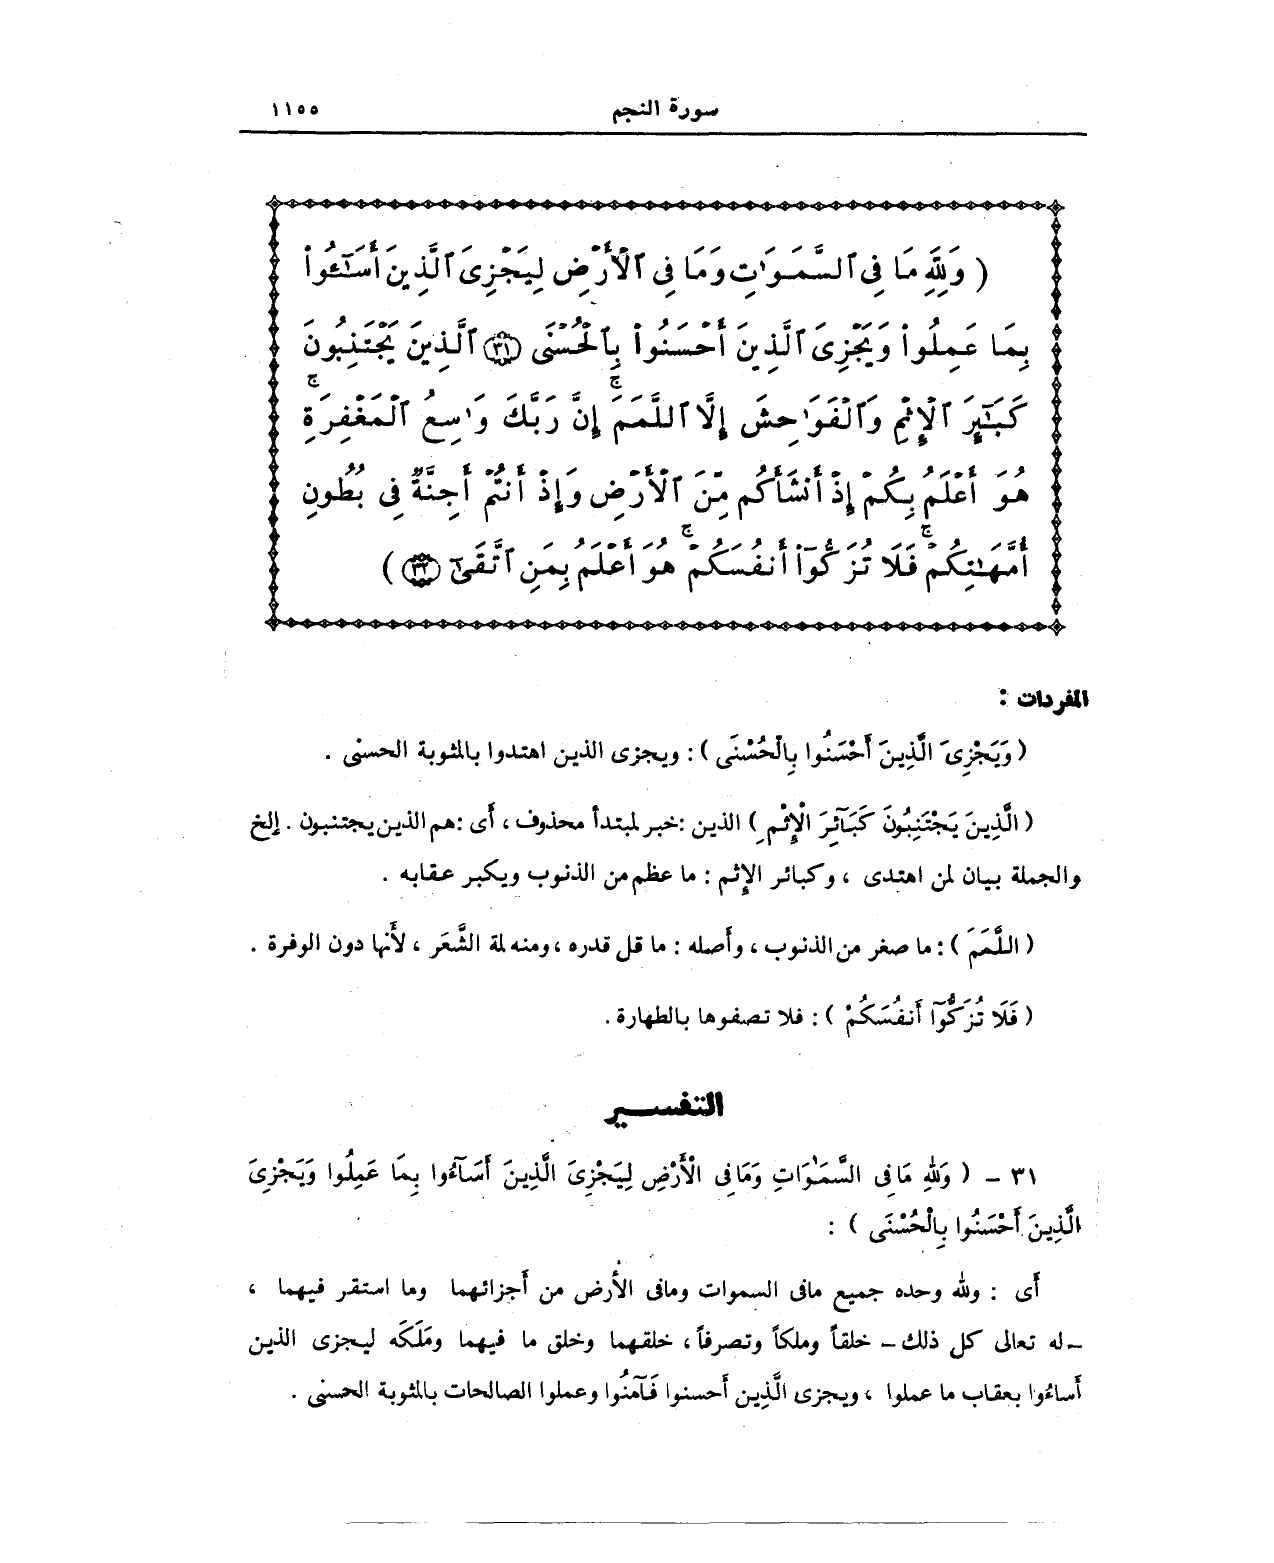 سورة النجم ١١٥٥
( وَلِلَّهِ مَا فِى ٱلسَّمَـٰوَٰتِ وَمَا فِى ٱلْأَرْضِ لِيَجْزِىَ ٱلَّذِينَ أَسَـٰٓـُٔوا۟
بِمَا عَمِلُوا۟ وَيَجْزِىَ ٱلَّذِينَ أَحْسَنُوا۟ بِٱلْحُسْنَى ﴿٣١﴾ ٱلَّذِينَ يَجْتَنِبُونَ
كَبَـٰٓئِرَ ٱلْإِثْمِ وَٱلْفَوَٰحِشَ إِلَّا ٱللَّمَمَ ۚ إِنَّ رَبَّكَ وَٰسِعُ ٱلْمَغْفِرَةِ ۚ
هُوَ أَعْلَمُ بِكُمْ إِذْ أَنشَأَكُم مِّنَ ٱلْأَرْضِ وَإِذْ أَنتُمْ أَجِنَّةٌ فِى بُطُونِ
أُمَّهَـٰتِكُمْ ۚ فَلَا تُزَكُّوٓا۟ أَنفُسَكُمْ ۚ هُوَ أَعْلَمُ بِمَنِ ٱتَّقَىٰٓ ﴿٣٢﴾ )
المفردات :
( وَيَجْزِىَ الَّذِينَ أَحْسَنُوا بِالْحُسْنَى ) : ويجزى الذين اهتدوا بالمثوبة الحسنى .
( الَّذِينَ يَجْتَنِبُونَ كَبَآئِرَ الْإِثْمِ ) الذين : خبر لمبتدأ محذوف ، أى : هم الذين يجتنبون . إلخ
والجملة بيان لمن اهتدى ، وكبائر الإثم : ما عظم من الذنوب ويكبر عقابه .
( اللَّمَمَ ) : ما صغر من الذنوب ، وأصله : ما قل قدره ، ومنه لمة الشَّعَر ، لأنها دون الوفرة .
( فَلَا تُزَكُّوٓا أَنفُسَكُمْ ) : فلا تصفوها بالطهارة .
التفسـير
٣١ - ( وَلِلهِ مَا فِى السَّمَـٰوَاتِ وَمَا فِى الْأَرْضِ لِيَجْزِىَ الَّذِينَ أَسَآءُوا بِمَا عَمِلُوا وَيَجْزِىَ
الَّذِينَ أَحْسَنُوا بِالْحُسْنَى ) :
أى : ولله وحده جميع مافى السموات ومافى الأرض من أجزائهما وما استقر فيهما ،
- له تعالى كل ذلك - خلقاً وملكاً وتصرفاً ، خلقهما وخلق ما فيهما ومَلَكَه ليجزى الذين
أساءُوا بعقاب ما عملوا ، ويجزى الَّذِين أحسنوا فَآمَنُوا وعملوا الصالحات بالمثوبة الحسنى .